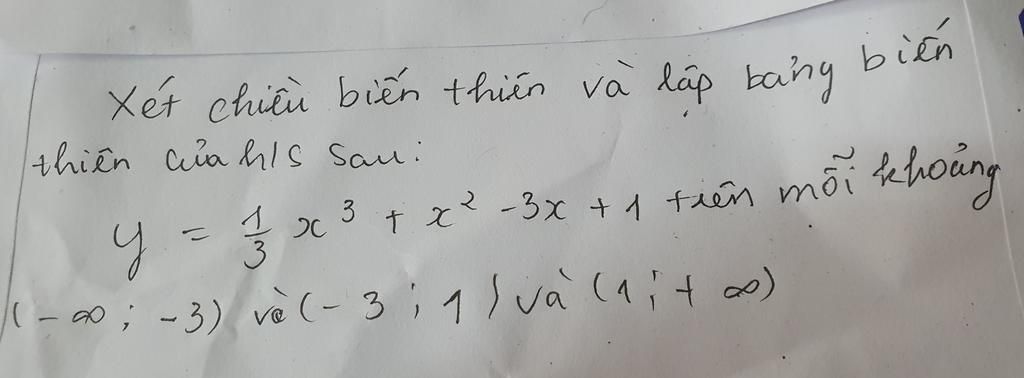 Xét chiều biến thiên và lập bảng biến
thiên của h/s sau:
y = 1/3 x³ + x² - 3x + 1 trên mỗi khoảng
(-∞; -3) và (-3; 1) và (1; +∞)